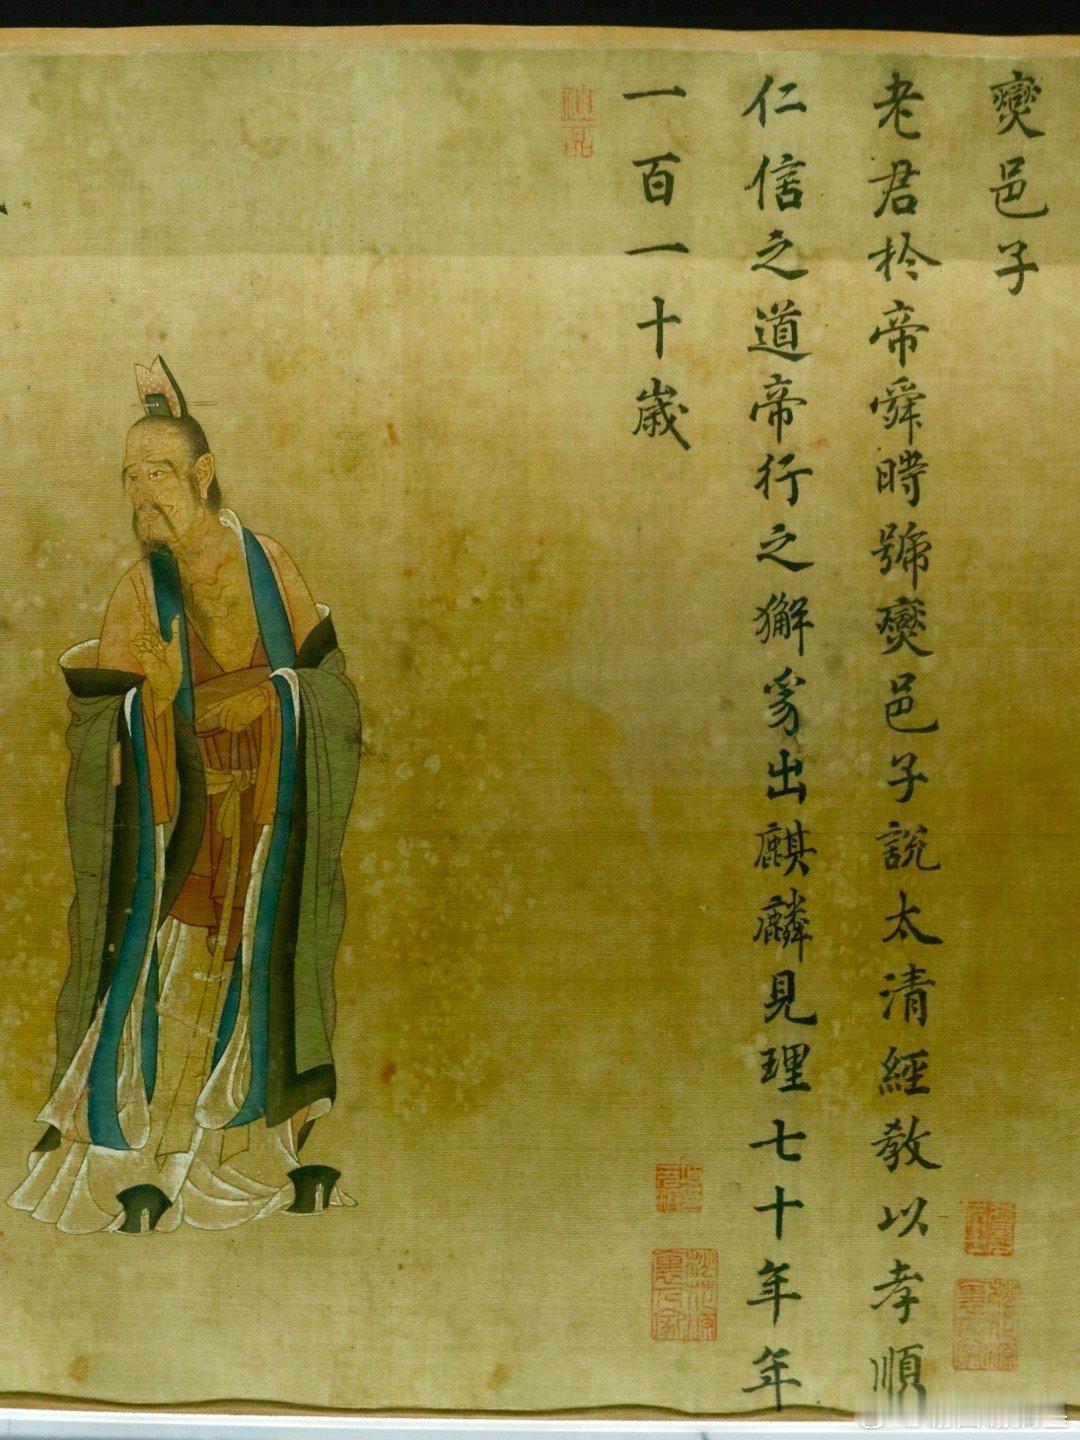 爕邑子
老君扵帝舜時號爕邑子說太清經教以孝順
仁信之道帝行之獬豸出麒麟見理七十年年
一百一十歲